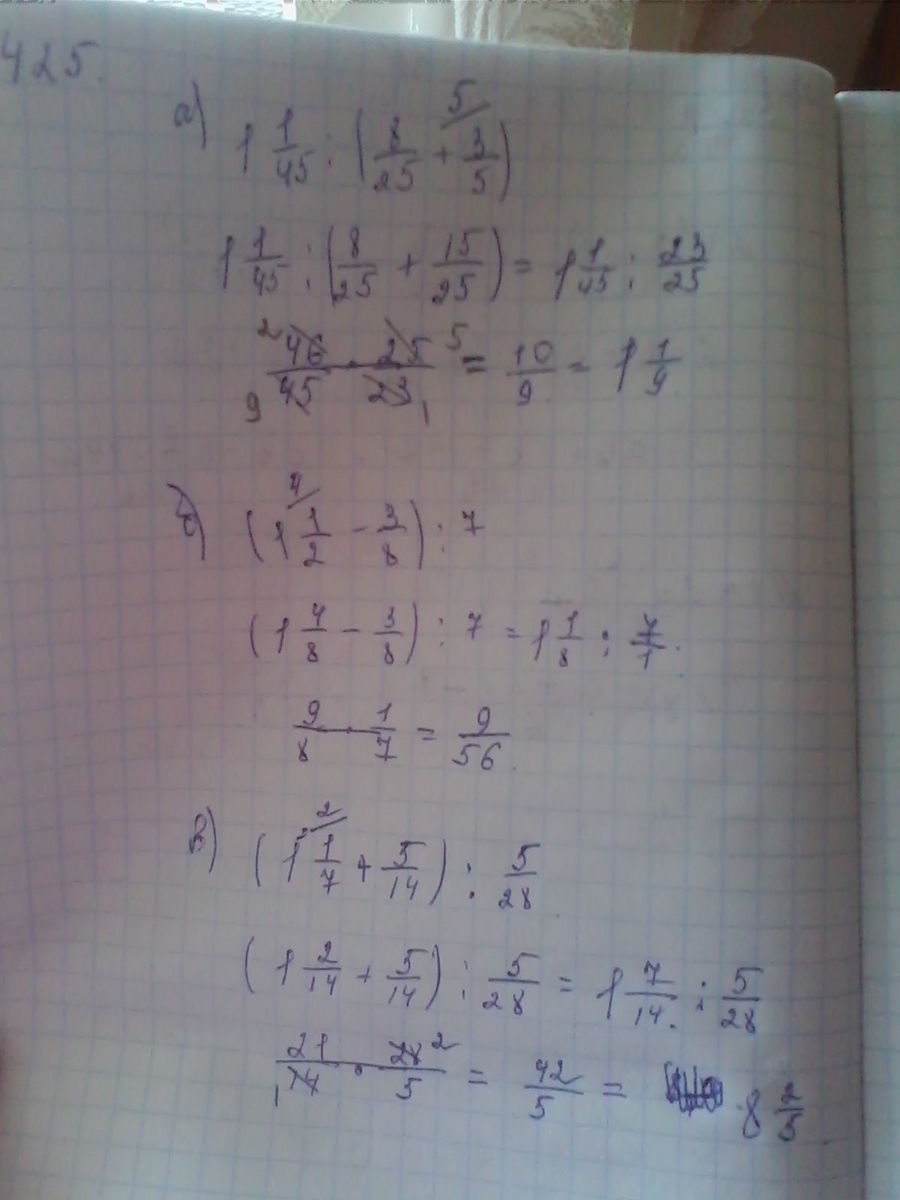 425.
а) 1 1/45 : (8/25 + 3/5) 5
1 1/45 : (8/25 + 15/25) = 1 1/45 : 23/25
2 46/45 9 · 25/23 5 1 = 10/9 = 1 1/9
б) (1 1/2 - 3/8) : 7 4
(1 4/8 - 3/8) : 7 = 1 1/8 : 7/1.
9/8 · 1/7 = 9/56.
в) (1 1/7 + 5/14) : 5/28 2
(1 2/14 + 5/14) : 5/28 = 1 7/14. : 5/28
21/14 1 · 28/5 2 = 42/5 = 8 2/5.